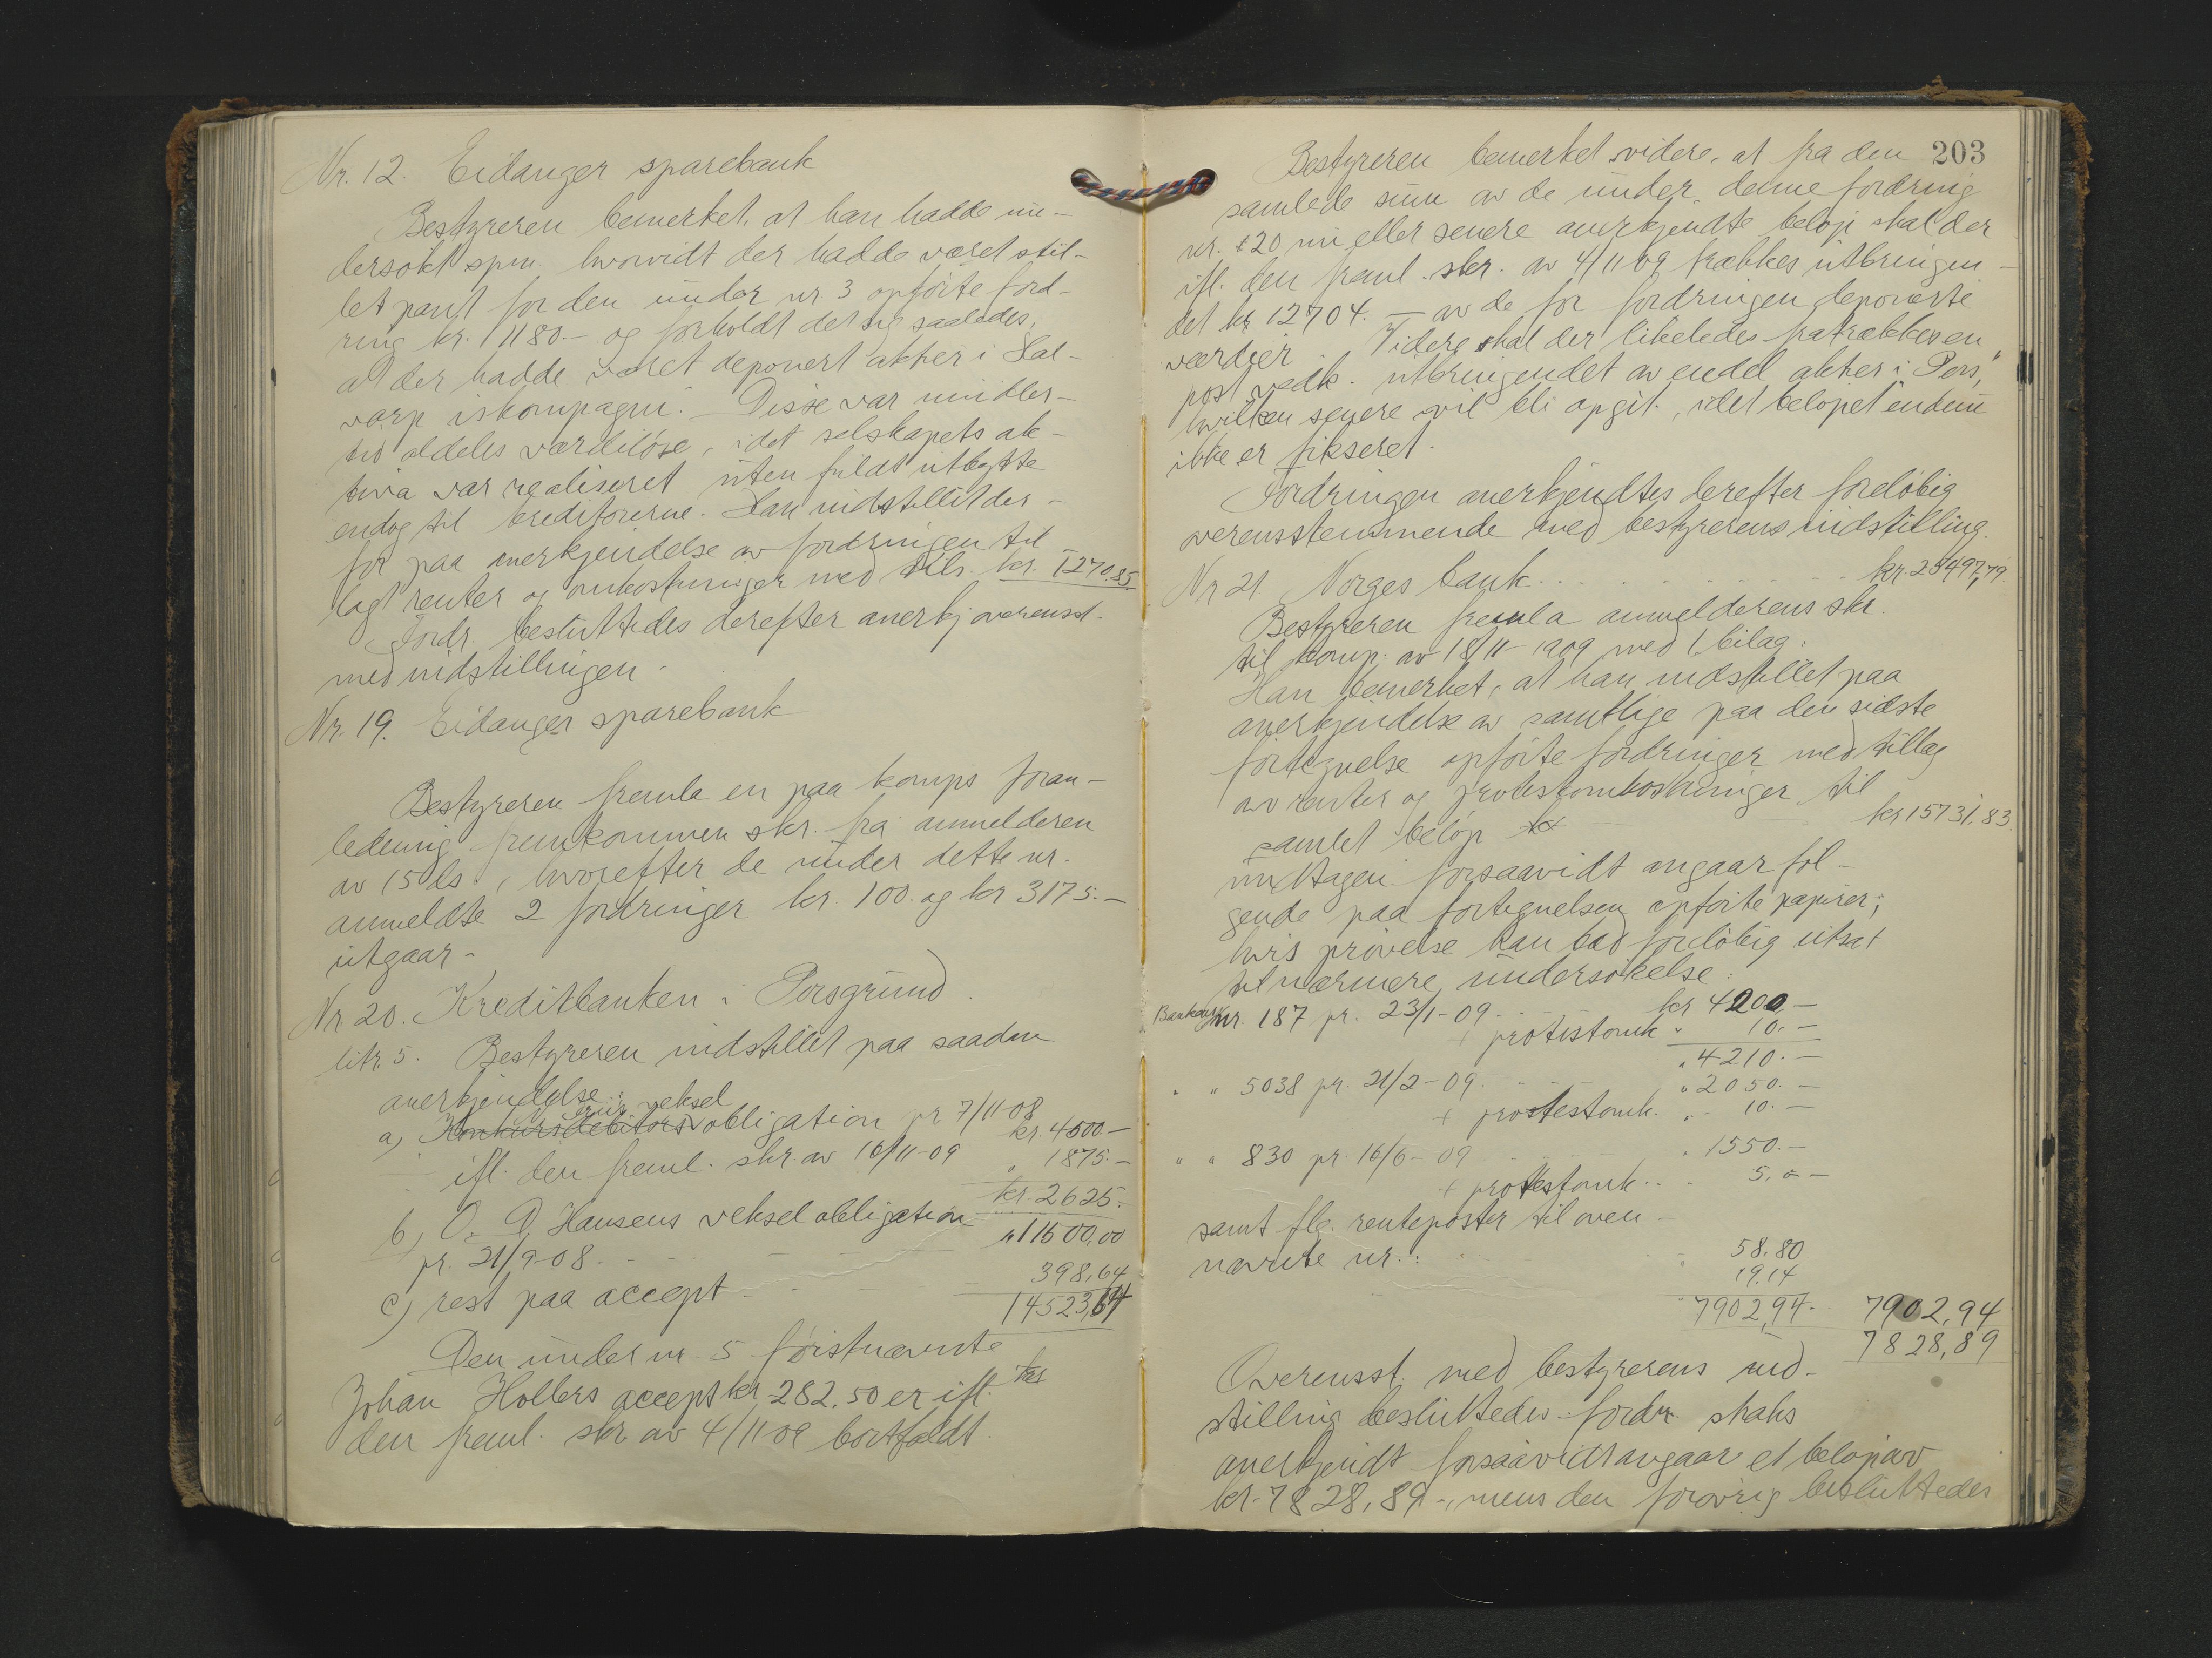 Nr. 12. Eidanger sparebank
Bestyreren bemerket, at han hadde un-
dersøkt spm. hvorvidt der hadde været stil-
let pant for den under nr. 3 opførte ford-
ring kr. 1180.- og forholdt det sig saaledes,
at der hadde været deponert aktier i Hal-
varp iskompagni. - Disse var imidler-
tid aldeles værdiløse, idet selskapets ak-
tiva var realiseret uten fuldt utbytte
endog til kreditorerne. Han indstillet der-
for paa anerkjendelse av fordringen til
lagt renter og omkostninger med tils. kr. 1270.85
Fordr. besluttedes derefter anerkj. overensst.
med indstillingen.
Nr. 19. Eidanger sparebank
Bestyreren fremla en paa komp's foran-
ledning fremkommen skr. fra anmelderen
av 15 ds., hvorefter de under dette nr.
anmeldte 2 fordringer kr. 100. og kr 3175.-
utgaar.-
Nr 20. Kreditbanken i Porsgrund.
litr. 5. Bestyreren indstillet paa saadan
anerkjendelse:
veksel
a) Konkursdebitors obligation pr 7/11-08 kr. 4500.-
ifl. den freml. skr. av 16/11-09 " 1875.-
kr. 2625.-
b) O. D. Hansens vekselobligation
pr. 21/9-08. - - - " 11500,00
c) rest paa accept - - - 398,64
14523,64
Den under nr. 5 førstnævnte
Johan Hollers accept kr 282,50 er ifl.
den freml. skr. av 4/11 09 bortfaldt.
203
Bestyreren bemerket videre, at fra den
samlede sum av de under denne fordring
nr. 20 nu eller senere anerkjendte beløp skal der
ifl. den freml. skr. av 4/11 09 trækkes utbringen-
det kr 12704. - av de for fordringen deponerte
værdier. Videre skal der likeledes fratrækkes en
post vedk. utbringendet av endel aktier i "Pors",
hvilken senere vil bli opgit, idet beløpet endnu
ikke er fikseret.
Fordringen anerkjendtes derefter foreløbig
overensstemmende med bestyrerens indstilling.
Nr 21. Norges bank. . . . . . . kr. 23497,79.
Bestyreren fremla anmelderens skr.
til komp. av 18/11-1909 med 1 bilag.
Han bemerket, at han indstillet paa
anerkjendelse av samtlige paa den sidste
fortegnelse opførte fordringer med tillæg
av renter og protestomkostninger til
samlet beløp kr 15731.83.
undtagen forsaavidt angaar føl-
gende paa fortegnelsen opførte papirer;
hvis prøvelse han bad foreløbig utsat
til nærmere undersøkelse:
nr. 187 pr. 23/1-09. - - - kr 4200.-
+ protestomk " 10.-
" 4210.-
" " 5038 pr. 21/2-09. - - - " 2050.-
+ protestomk. " - 10.-
" " 830 pr. 16/6-09 . . . . " 1550.-
+ protestomk. . . 5,0-
samt flg. renteposter til oven-
nævnte nr.: 58.80
19.14
7902,94. 7902,94
7828,89
Overensst. med bestyrerens ind-
stilling besluttedes fordr. straks
anerkjendt forsaavidt angaar et beløp av
kr. 7828,89.-, mens den forøvrig besluttedes